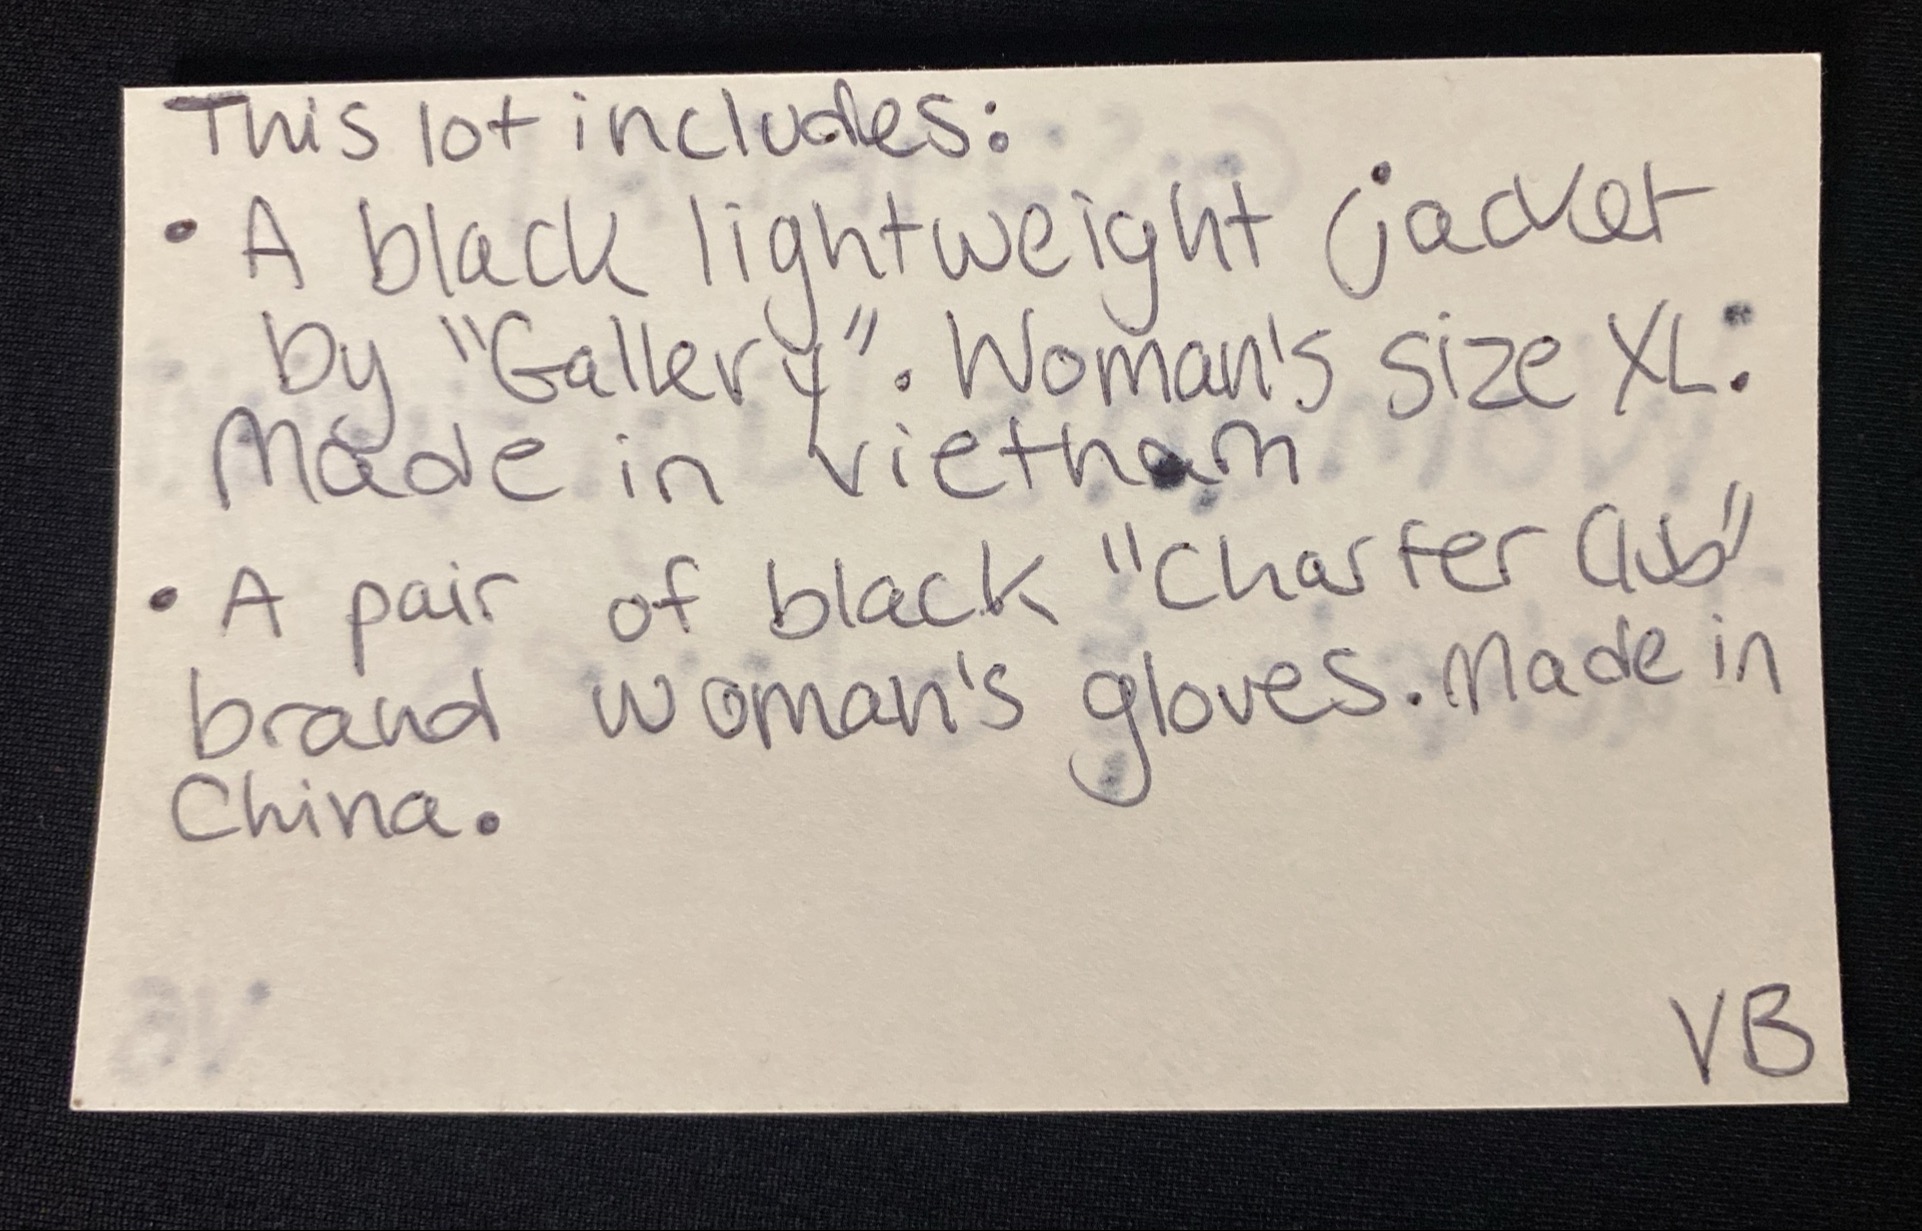 This lot includes:
• A black lightweight jacket
by "Gallery". Woman's size XL.
Made in Vietnam
• A pair of black "Charter Club"
brand woman's gloves. Made in
China.
VB